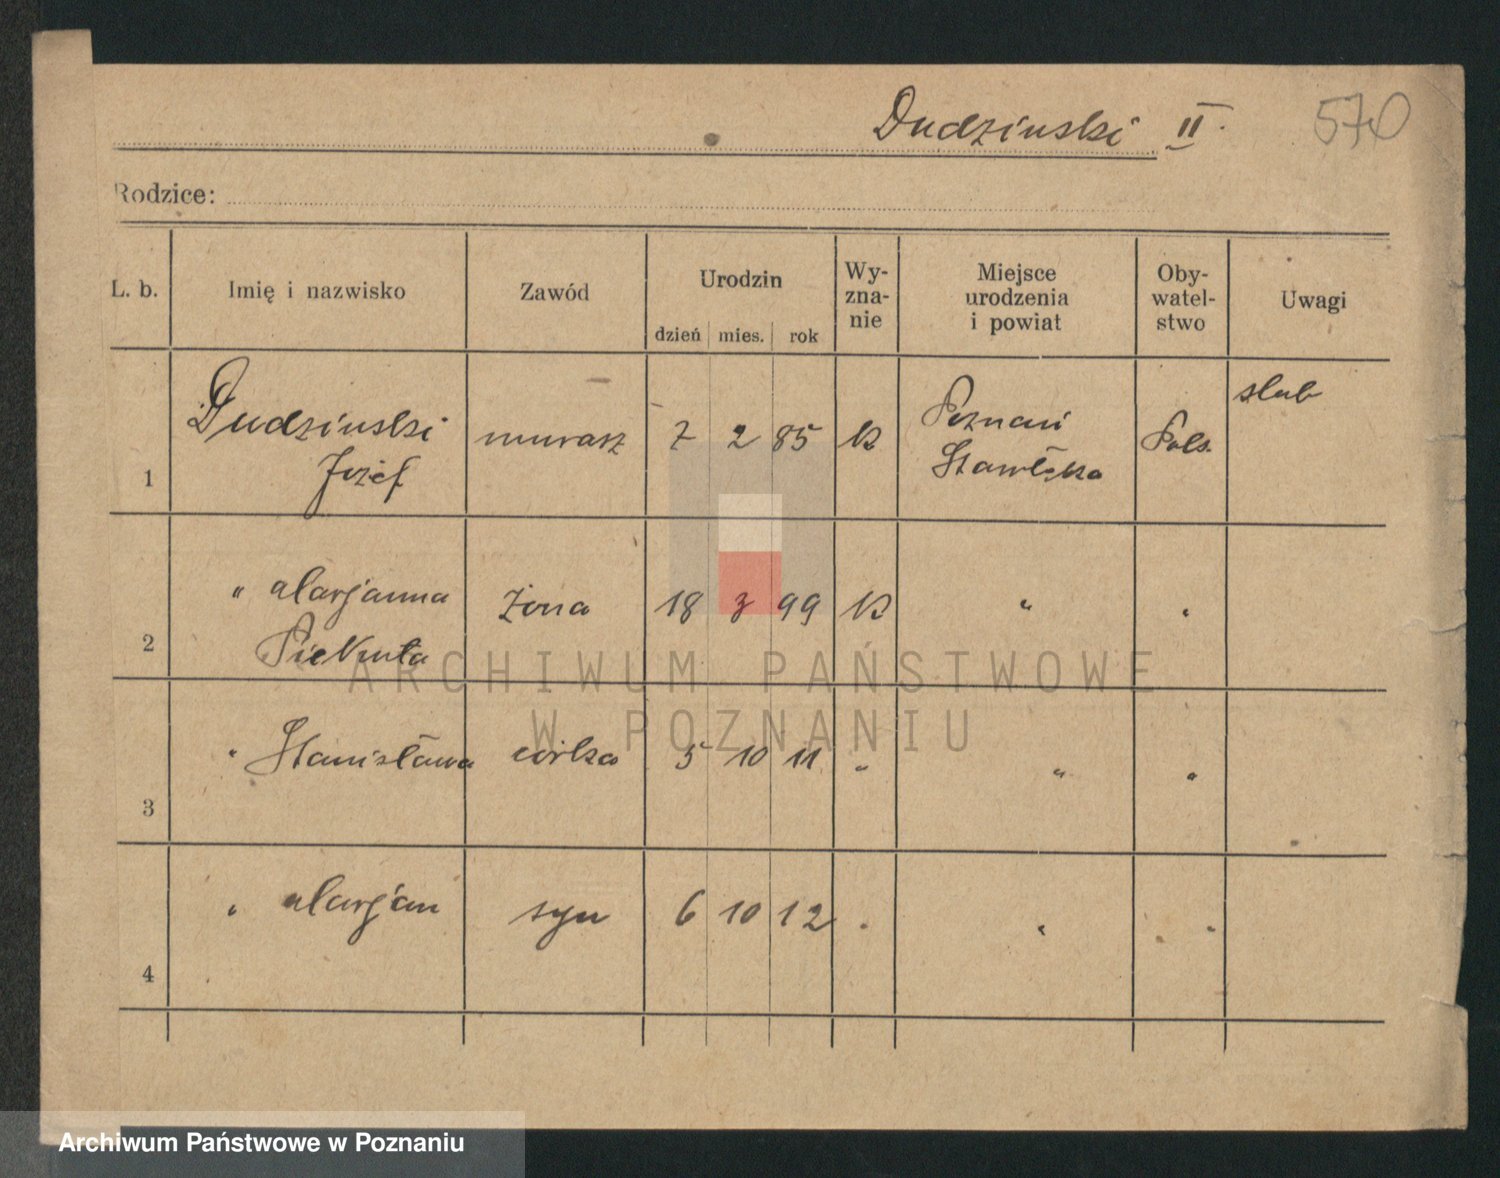 Dudziński II.
570
Rodzice:
L. b.
Imię i nazwisko
Zawód
Urodzin
dzień mies. rok
Wy-
zna-
nie
Miejsce
urodzenia
i powiat
Oby-
watel-
stwo
Uwagi
1
Dudziński
Józef
murarz
7 2 85
k
Poznań
Pols.
2
" Marjanna
żona
18 3 99
k
"
"
3
" Stanisława
córka
5 10 11
"
"
"
4
" Marjan
syn
6 10 12
"
"
"
ARCHIWUM PAŃSTWOWE
W POZNANIU
Archiwum Państwowe w Poznaniu